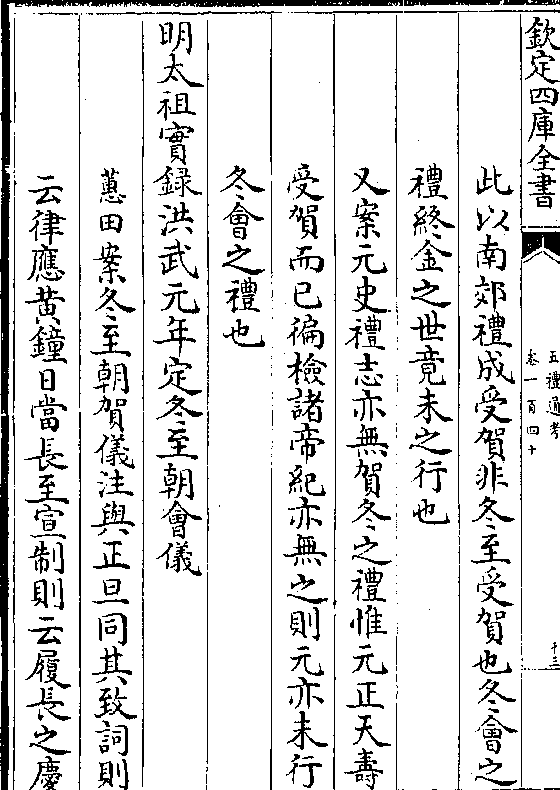 欽定四庫全書
五禮通考
卷一百四十
此以南郊禮成受賀非冬至受賀也冬會之
禮終金之世竟未之行也
又案元史禮志亦無賀冬之禮惟元正天壽
受賀而已徧檢諸帝紀亦無之則元亦未行
冬會之禮也
明太祖實錄洪武元年定冬至朝會儀
蕙田案冬至朝賀儀注與正旦同其致詞則
云律應黃鐘日當長至宣制則云履長之慶